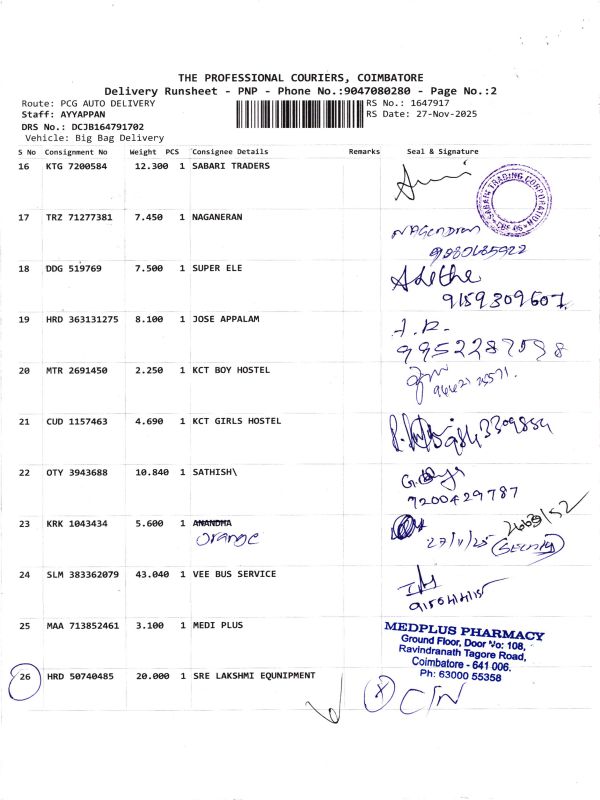 THE PROFESSIONAL COURIERS, COIMBATORE
Delivery Runsheet - PNP - Phone No.:9047080280 - Page No.:2
Route: PCG AUTO DELIVERY RS No.: 1647917
Staff: AYYAPPAN RS Date: 27-Nov-2025
DRS No.: DCJB164791702
Vehicle: Big Bag Delivery
S No Consignment No Weight PCS Consignee Details Remarks Seal & Signature
16 KTG 7200584 12.300 1 SABARI TRADERS
SABARI TRADING CORPORATION
17 TRZ 71277381 7.450 1 NAGANERAN
NAGENDRAN
18 DDG 519769 7.500 1 SUPER ELE
9159309607
19 HRD 363131275 8.100 1 JOSE APPALAM
20 MTR 2691450 2.250 1 KCT BOY HOSTEL
21 CUD 1157463 4.690 1 KCT GIRLS HOSTEL
22 OTY 3943688 10.840 1 SATHISH\
7200429787
23 KRK 1043434 5.600 1 ANANDHA
orange 27/11/25 (Security)
24 SLM 383362079 43.040 1 VEE BUS SERVICE
25 MAA 713852461 3.100 1 MEDI PLUS
MEDPLUS PHARMACY
Ground Floor, Door No: 108,
Ravindranath Tagore Road,
Coimbatore - 641 006.
Ph: 63000 55358
26 HRD 50740485 20.000 1 SRE LAKSHMI EQUNIPMENT
C/N